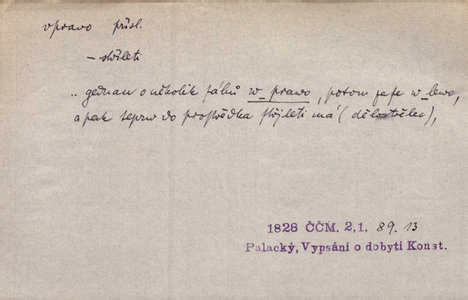 vpravo přísl.
– střleti
.. gednau o několik sáhů w_prawo, potom zase w_lewo,
a pak teprw do prostředka střjleti má (dělostřelec),
1828 ČČM. 2,1. 89. 13
Palacký, Vypsání o dobytí Konst.